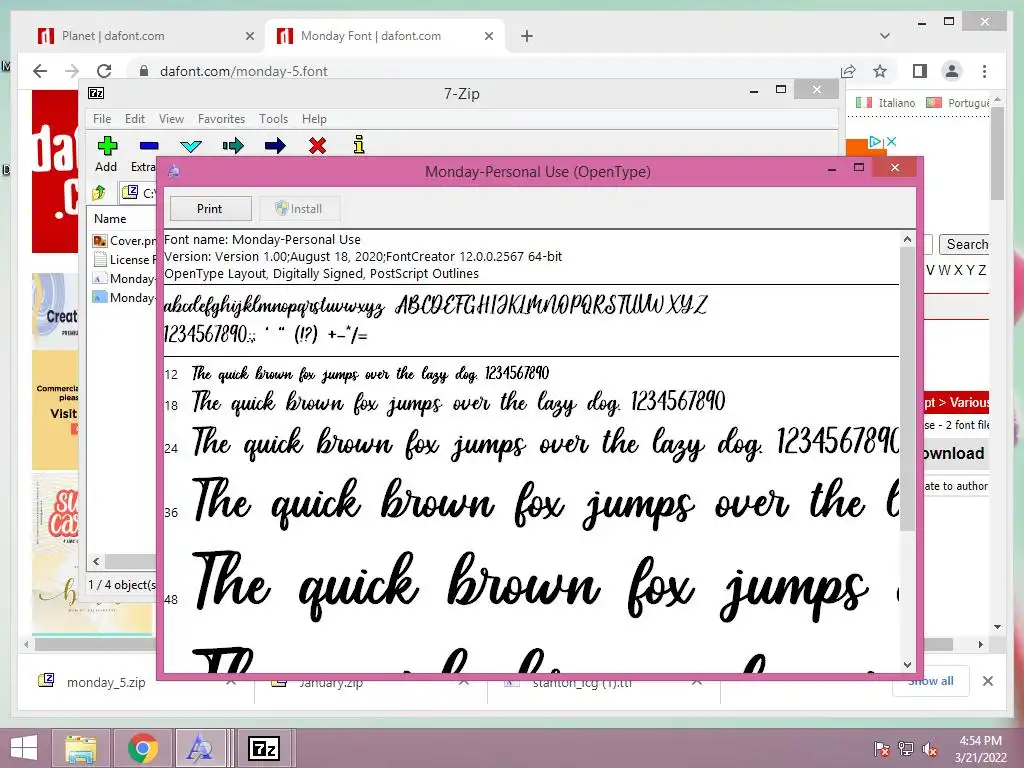 Planet | dafont.com
Monday Font | dafont.com
dafont.com/monday-5.font
7-Zip
Italiano
File Edit View Favorites Tools Help
Add
Monday-Personal Use (OpenType)
Print Install
Name
Font name: Monday-Personal Use
Version: Version 1.00;August 18, 2020;FontCreator 12.0.0.2567 64-bit
OpenType Layout, Digitally Signed, PostScript Outlines
Search
V W X Y Z
License
Monday-
Monday-
abcdefghijklmnopqrstuvwxyz ABCDEFGHIJKLMNOPQRSTUVWXYZ
1234567890.:, ' " (!?) +-*/=
12 The quick brown fox jumps over the lazy dog. 1234567890
18 The quick brown fox jumps over the lazy dog. 1234567890
24 The quick brown fox jumps over the lazy dog. 1234567890
36 The quick brown fox jumps over the
48 The quick brown fox jumps
The
pt > Various
se - 2 font file
ownload
ate to author
Visit
1 / 4 object(s
monday_5.zip
January.zip
stanton_icg (1).ttf
Show all
4:54 PM
3/21/2022